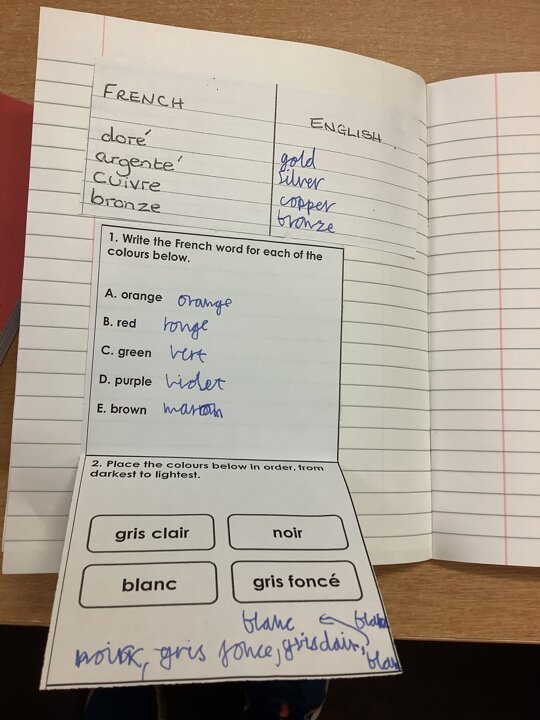 FRENCH
ENGLISH
doré gold
argenté silver
cuivre copper
bronze bronze
1. Write the French word for each of the
colours below.
A. orange orange
B. red rouge
C. green vert
D. purple violet
E. brown
2. Place the colours below in order, from
darkest to lightest.
gris clair noir
blanc gris foncé
blanc
gris fonce, gris clair,